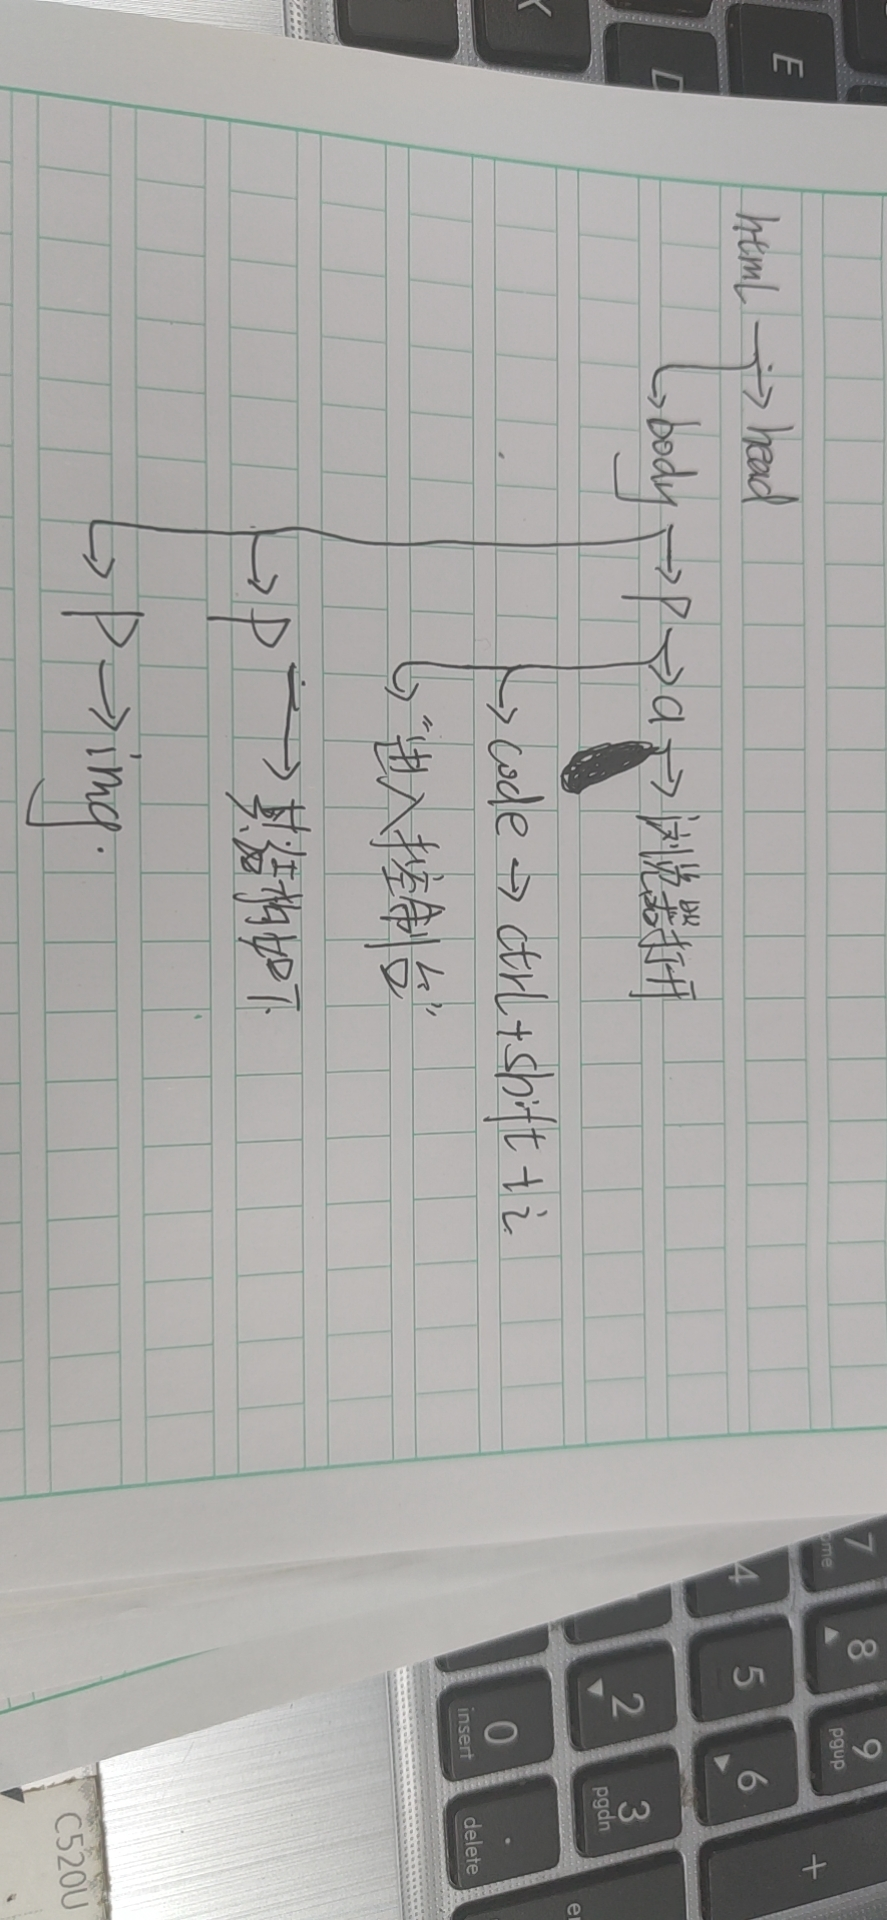 html → head
→ body → P → a → 浏览器打开
→ code → ctrl+shift+i
→ "进入控制台"
→ P → 其结构如下
→ P → img.
K
D
E
7
8
9
pgup
4
5
6
2
3
pgdn
0
insert
.
delete
+
C520U